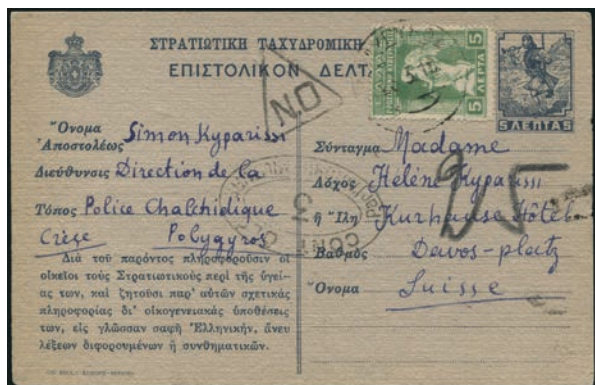 ΣΤΡΑΤΙΩΤΙΚΗ ΤΑΧΥΔΡΟΜΙΚΗ
ΕΠΙΣΤΟΛΙΚΟΝ ΔΕΛΤ
5 ΛΕΠΤΑ 5
5 ΛΕΠΤΑ 5
Ὄνομα
Ἀποστολέως Simon Kyparissi
Διεύθυνσις Direction de la
Τόπος Police Chalchidique
Crèce Polygyros
Διὰ τοῦ παρόντος πληροφοροῦσιν οἱ
οἰκεῖοι τοὺς Στρατιωτικοὺς περὶ τῆς ὑγεί-
ας των, καὶ ζητοῦσι παρ' αὐτῶν σχετικὰς
πληροφορίας δι' οἰκογενειακὰς ὑποθέσεις
των, εἰς γλῶσσαν σαφῆ Ἑλληνικήν, ἄνευ
λέξεων διφορουμένων ἢ συνθηματικῶν.
Σύνταγμα Madame
Λόχος Hélène Kyparissi
ἢ Ἴλη Kurhause Hôtel
Βαθμὸς Davos-platz
Ὄνομα Suisse
25
CONT
3